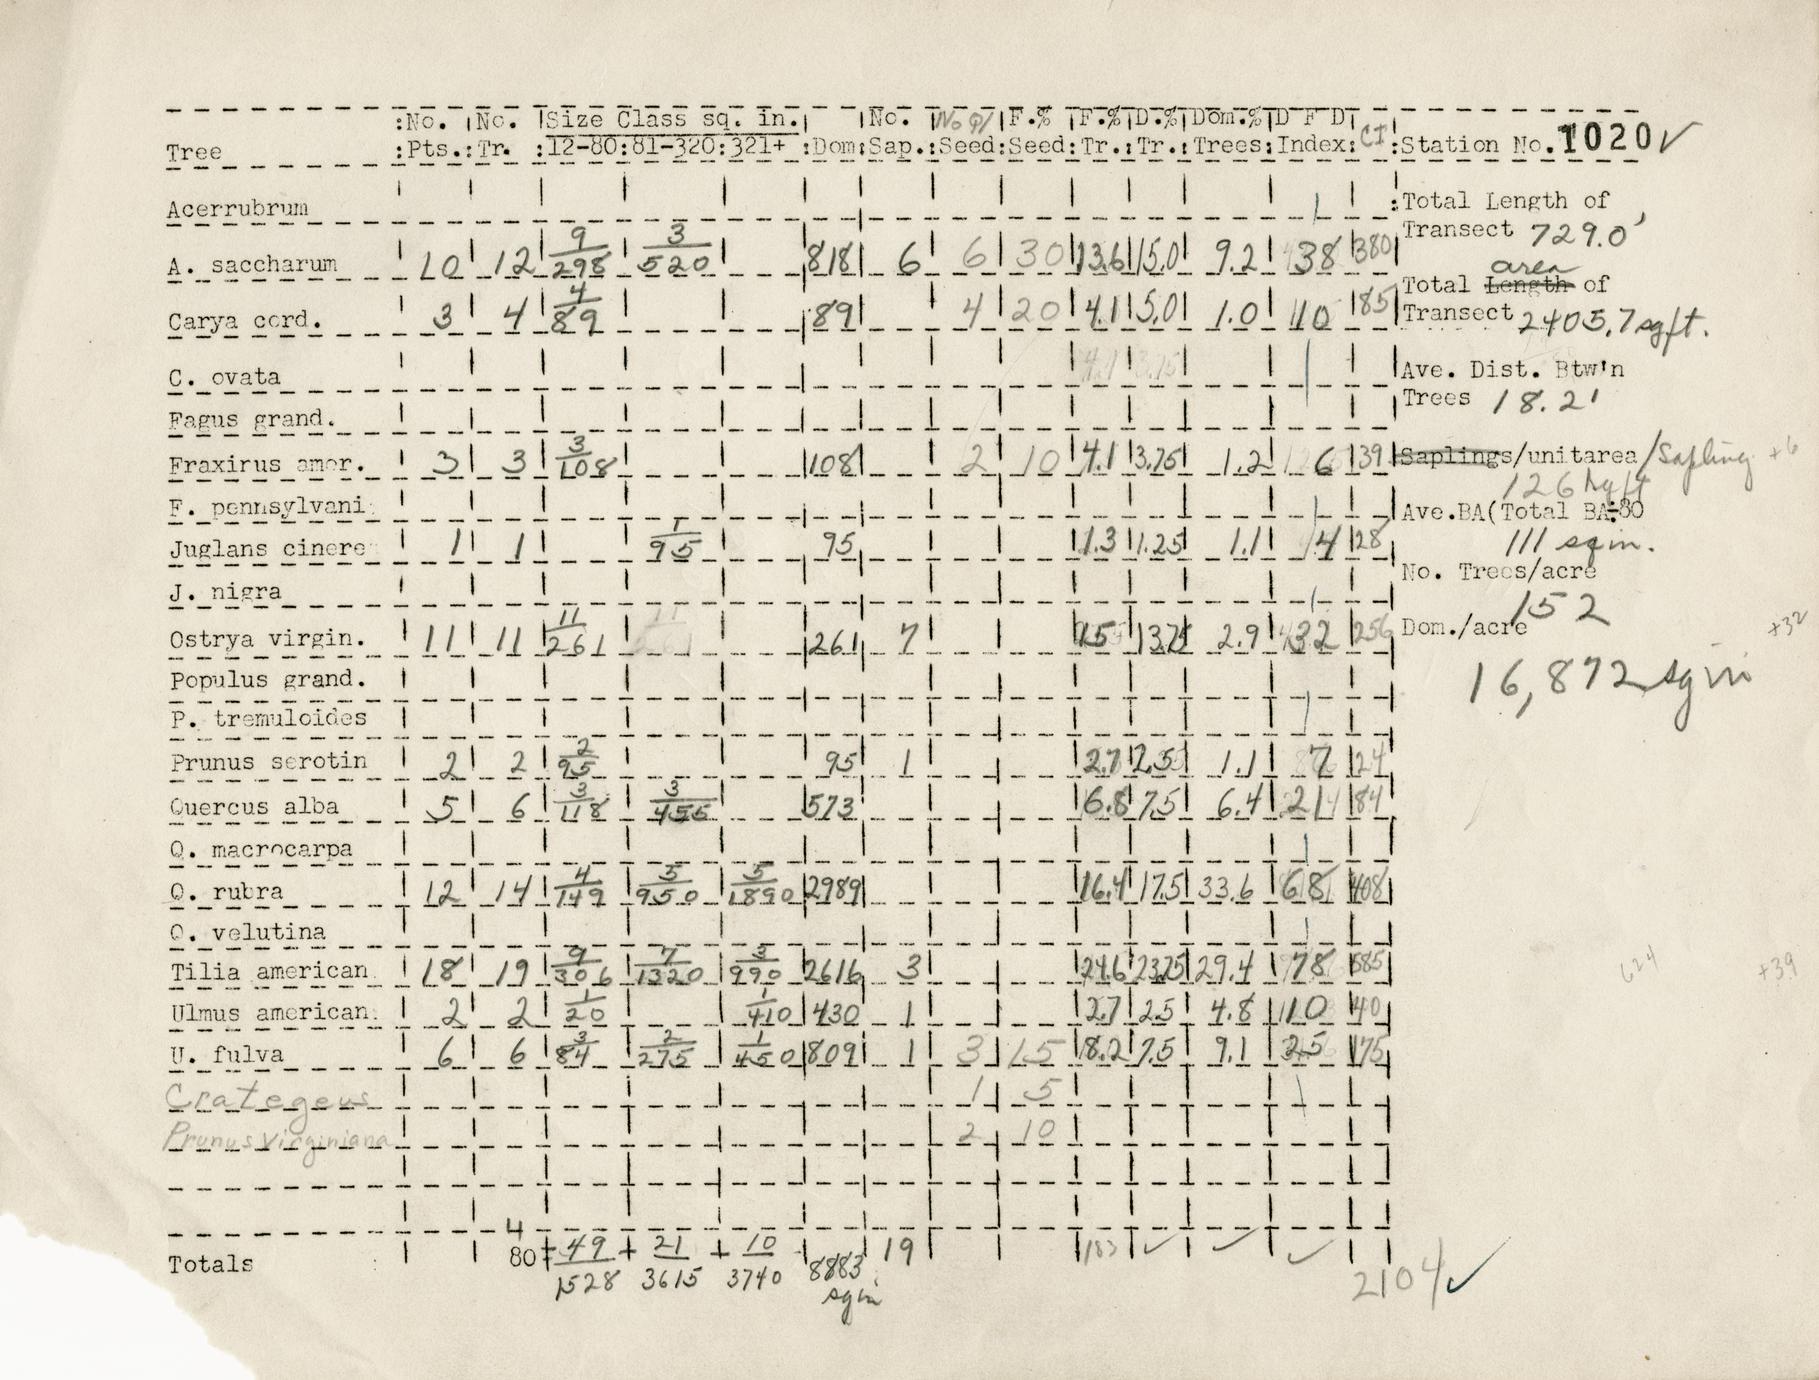 :No. |No. |Size Class sq. in.| |No. |No of |F.% |F.% |D.% |Dom.% |D F D|
Tree :Pts.:Tr. :12-80:81-320:321+ :Dom:Sap.:Seed:Seed:Tr.:Tr.:Trees:Index: CI :Station No. 1020✓
Acerrubrum
:Total Length of
Transect 729.0'
A. saccharum 10 12 9/298 3/520 818 6 6 30 13.6 15.0 9.2 38 380
area
Total Length of
Transect 2405.7 sq ft.
Carya cord. 3 4 4/89 89 4 20 4.1 5.0 1.0 10 185
C. ovata 4.1 3.75
Ave. Dist. Btw'n
Trees 18.2'
Fagus grand.
Fraxirus amer. 3 3 3/108 108 2 10 4.1 3.75 1.2 6 139
Saplings/unitarea/Sapling +6
126 sq ft
F. pennsylvani
Ave.BA(Total BA÷80
111 sq in.
Juglans cinere 1 1 1/95 95 1.3 1.25 1.1 4 128
J. nigra
No. Trees/acre
152
Ostrya virgin. 11 11 11/261 11/261 261 7 15 13.75 2.9 32 256
Dom./acre +32
16,872 sq in
Populus grand.
P. tremuloides
Prunus serotin 2 2 2/95 95 1 2.7 2.5 1.1 7 24
Quercus alba 5 6 3/118 3/455 573 6.8 7.5 6.4 21 84
Q. macrocarpa
Q. rubra 12 14 4/149 5/950 5/1890 2989 16.4 17.5 33.6 68 408
Q. velutina
Tilia american 18 19 9/306 7/1320 3/990 2616 3 24.6 23.75 29.4 78 585
624 +39
Ulmus american. 2 2 1/20 1/410 430 1 2.7 2.5 4.8 10 40
U. fulva 6 6 3/84 2/275 1/450 809 1 3 15 8.2 7.5 9.1 25 175
Crategeus 1 5
Prunus virginiana 2 10
4
Totals 80 ÷ 49/1528 + 21/3615 + 10/3740 8883 sq in 19 183 ✓ ✓ ✓
2104✓